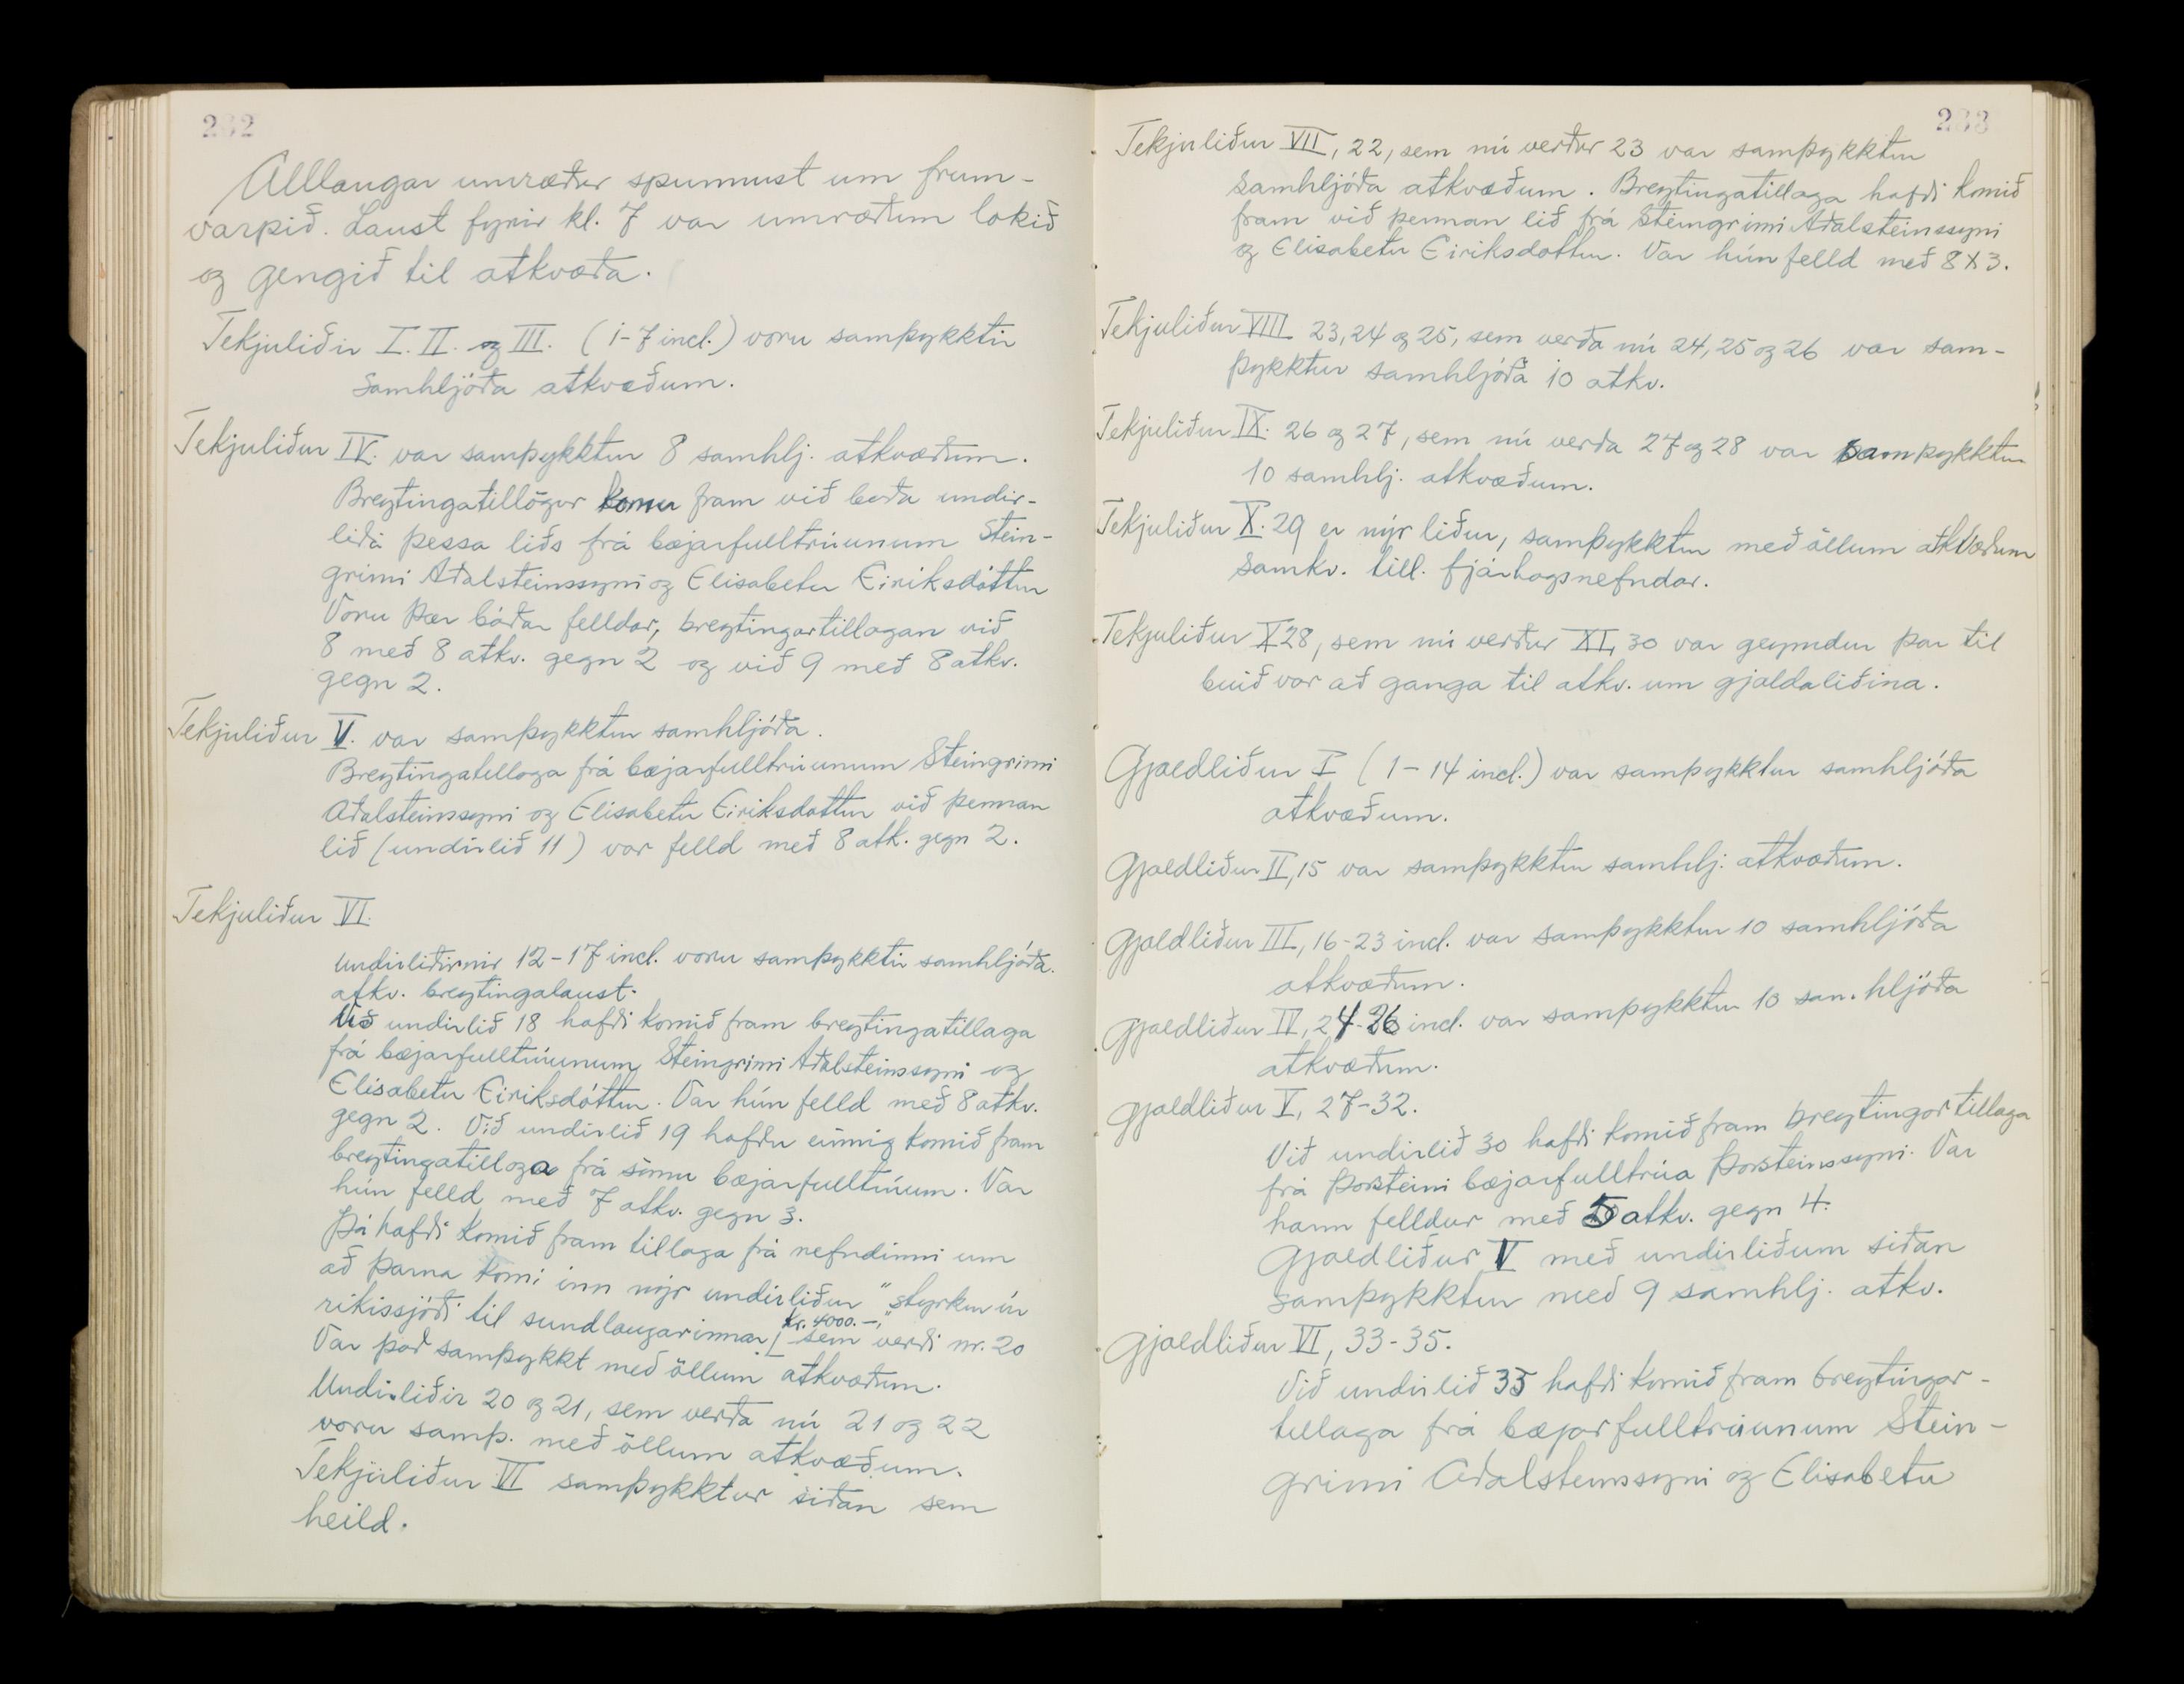 232
Alllangar umræður spunnust um frum-
varpið. Laust fyrir kl. 7 var umræðum lokið
og gengið til atkvæða.
Tekjuliðir I. II. og III. (1-7 incl.) voru samþykktir
samhljóða atkvæðum.
Tekjuliður IV. var samþykktur 8 samhlj. atkvæðum.
Breytingatillögur komu fram við báða undir-
liði þessa liðs frá bæjarfulltrúunum Stein-
grími Aðalsteinssyni og Elisabetu Eiríksdóttur
Voru þær báðar felldar, breytingartillagan við
8 með 8 atkv. gegn 2 og við 9 með 8 atkv.
gegn 2.
Tekjuliður V. var samþykktur samhljóða.
Breytingatillaga frá bæjarfulltrúunum Steingrími
Aðalsteinssyni og Elisabetu Eiríksdóttur við þennan
lið (undirlið 11) var felld með 8 atk. gegn 2.
Tekjuliður VI.
Undirliðirnir 12-17 incl. voru samþykktir samhljóða.
atkv. breytingalaust.
Við undirlið 18 hafði komið fram breytingatillaga
frá bæjarfulltrúunum Steingrími Aðalsteinssyni og
Elisabetu Eiríksdóttur. Var hún felld með 8 atkv.
gegn 2. Við undirlið 19 hafði einnig komið fram
breytingatillaga frá sömu bæjarfulltrúum. Var
hún felld með 7 atkv. gegn 3.
Þá hafði komið fram tillaga frá nefndinni um
að þarna komi inn nýr undirliður "styrkur úr
ríkissjóði til sundlaugarinnar kr. 4000.-," sem verði nr. 20
Var það samþykkt með öllum atkvæðum.
Undirliðir 20 og 21, sem verða nú 21 og 22
voru samþ. með öllum atkvæðum.
Tekjuliður VI samþykktur síðan sem
heild.
233
Tekjuliður VII, 22, sem nú verður 23 var samþykktur
samhljóða atkvæðum. Breytingatillaga hafði komið
fram við þennan lið frá Steingrími Aðalsteinssyni
og Elisabetu Eiríksdóttur. Var hún felld með 8 x 3.
Tekjuliður VIII 23, 24 og 25, sem verða nú 24, 25 og 26 var sam-
þykktur samhljóða 10 atkv.
Tekjuliður IX. 26 og 27, sem nú verða 27 og 28 var samþykktur
10 samhlj. atkvæðum.
Tekjuliður X. 29 er nýr liður, samþykktur með öllum atkvæðum
samkv. till. fjárhagsnefndar.
Tekjuliður X 28, sem nú verður XI, 30 var geymdur þar til
búið var að ganga til atkv. um gjaldaliðina.
Gjaldliður I (1-14 incl.) var samþykktur samhljóða
atkvæðum.
Gjaldliður II, 15 var samþykktur samhlj. atkvæðum.
Gjaldliður III, 16-23 incl. var samþykktur 10 samhljóða
atkvæðum.
Gjaldliður IV, 24-26 incl. var samþykktur 10 samhljóða
atkvæðum.
Gjaldliður V, 27-32.
Við undirlið 30 hafði komið fram breytingartillaga
frá Þorsteini bæjarfulltrúa Þorsteinssyni. Var
hann felldur með 5 atkv. gegn 4.
Gjaldliður V með undirliðum síðan
samþykktur með 9 samhlj. atkv.
Gjaldliður VI, 33-35.
Við undirlið 35 hafði komið fram breytingar-
tillaga frá bæjarfulltrúunum Stein-
grími Aðalsteinssyni og Elisabetu